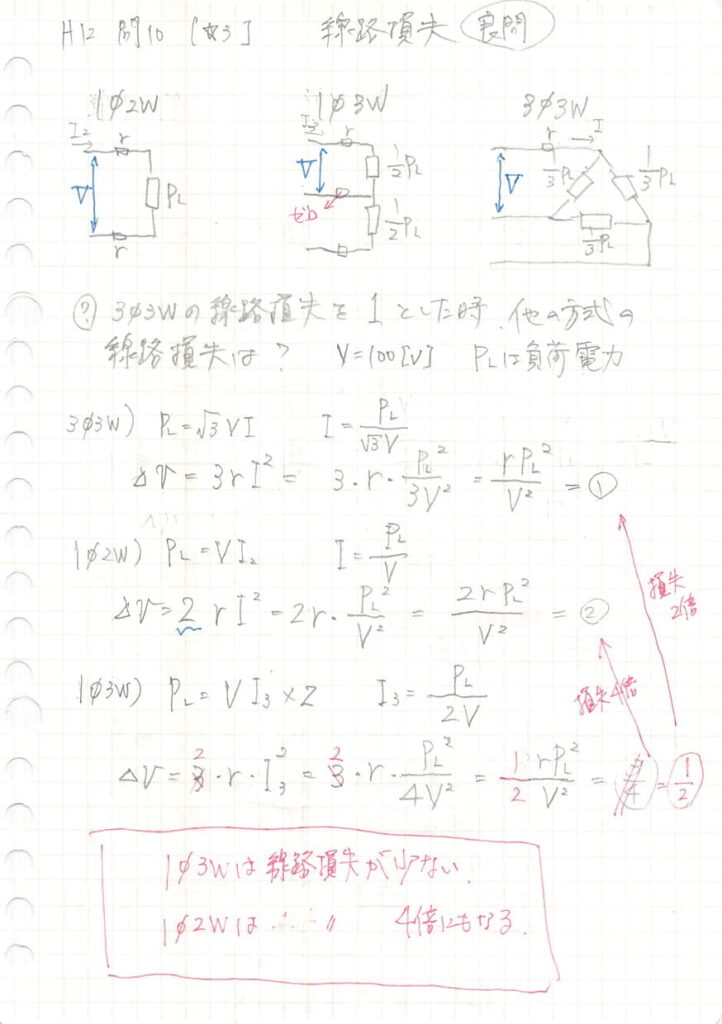 H12 問10 [☆3] 線路損失 良問
1φ2W 1φ3W 3φ3W
I2 r V PL r
I3 r V 1/2 PL ゼロ 1/2 PL
r I V 1/3 PL 1/3 PL 1/3 PL
? 3φ3Wの線路損失を1とした時、他の方式の
線路損失は? V=100[V] PLは負荷電力
3φ3W) PL=√3VI I=PL/√3V
ΔV=3rI²=3・r・PL²/3V²=rPL²/V²=①
1φ2W) PL=VI2 I=PL/V
ΔV=2rI²=2r・PL²/V²=2rPL²/V²=②
損失2倍
1φ3W) PL=VI3×2 I3=PL/2V
損失4倍
ΔV=2・r・I3²=2・r・PL²/4V²=1/2 rPL²/V²=1/2
1φ3Wは線路損失が少ない.
1φ2Wは 〃 4倍にもなる.